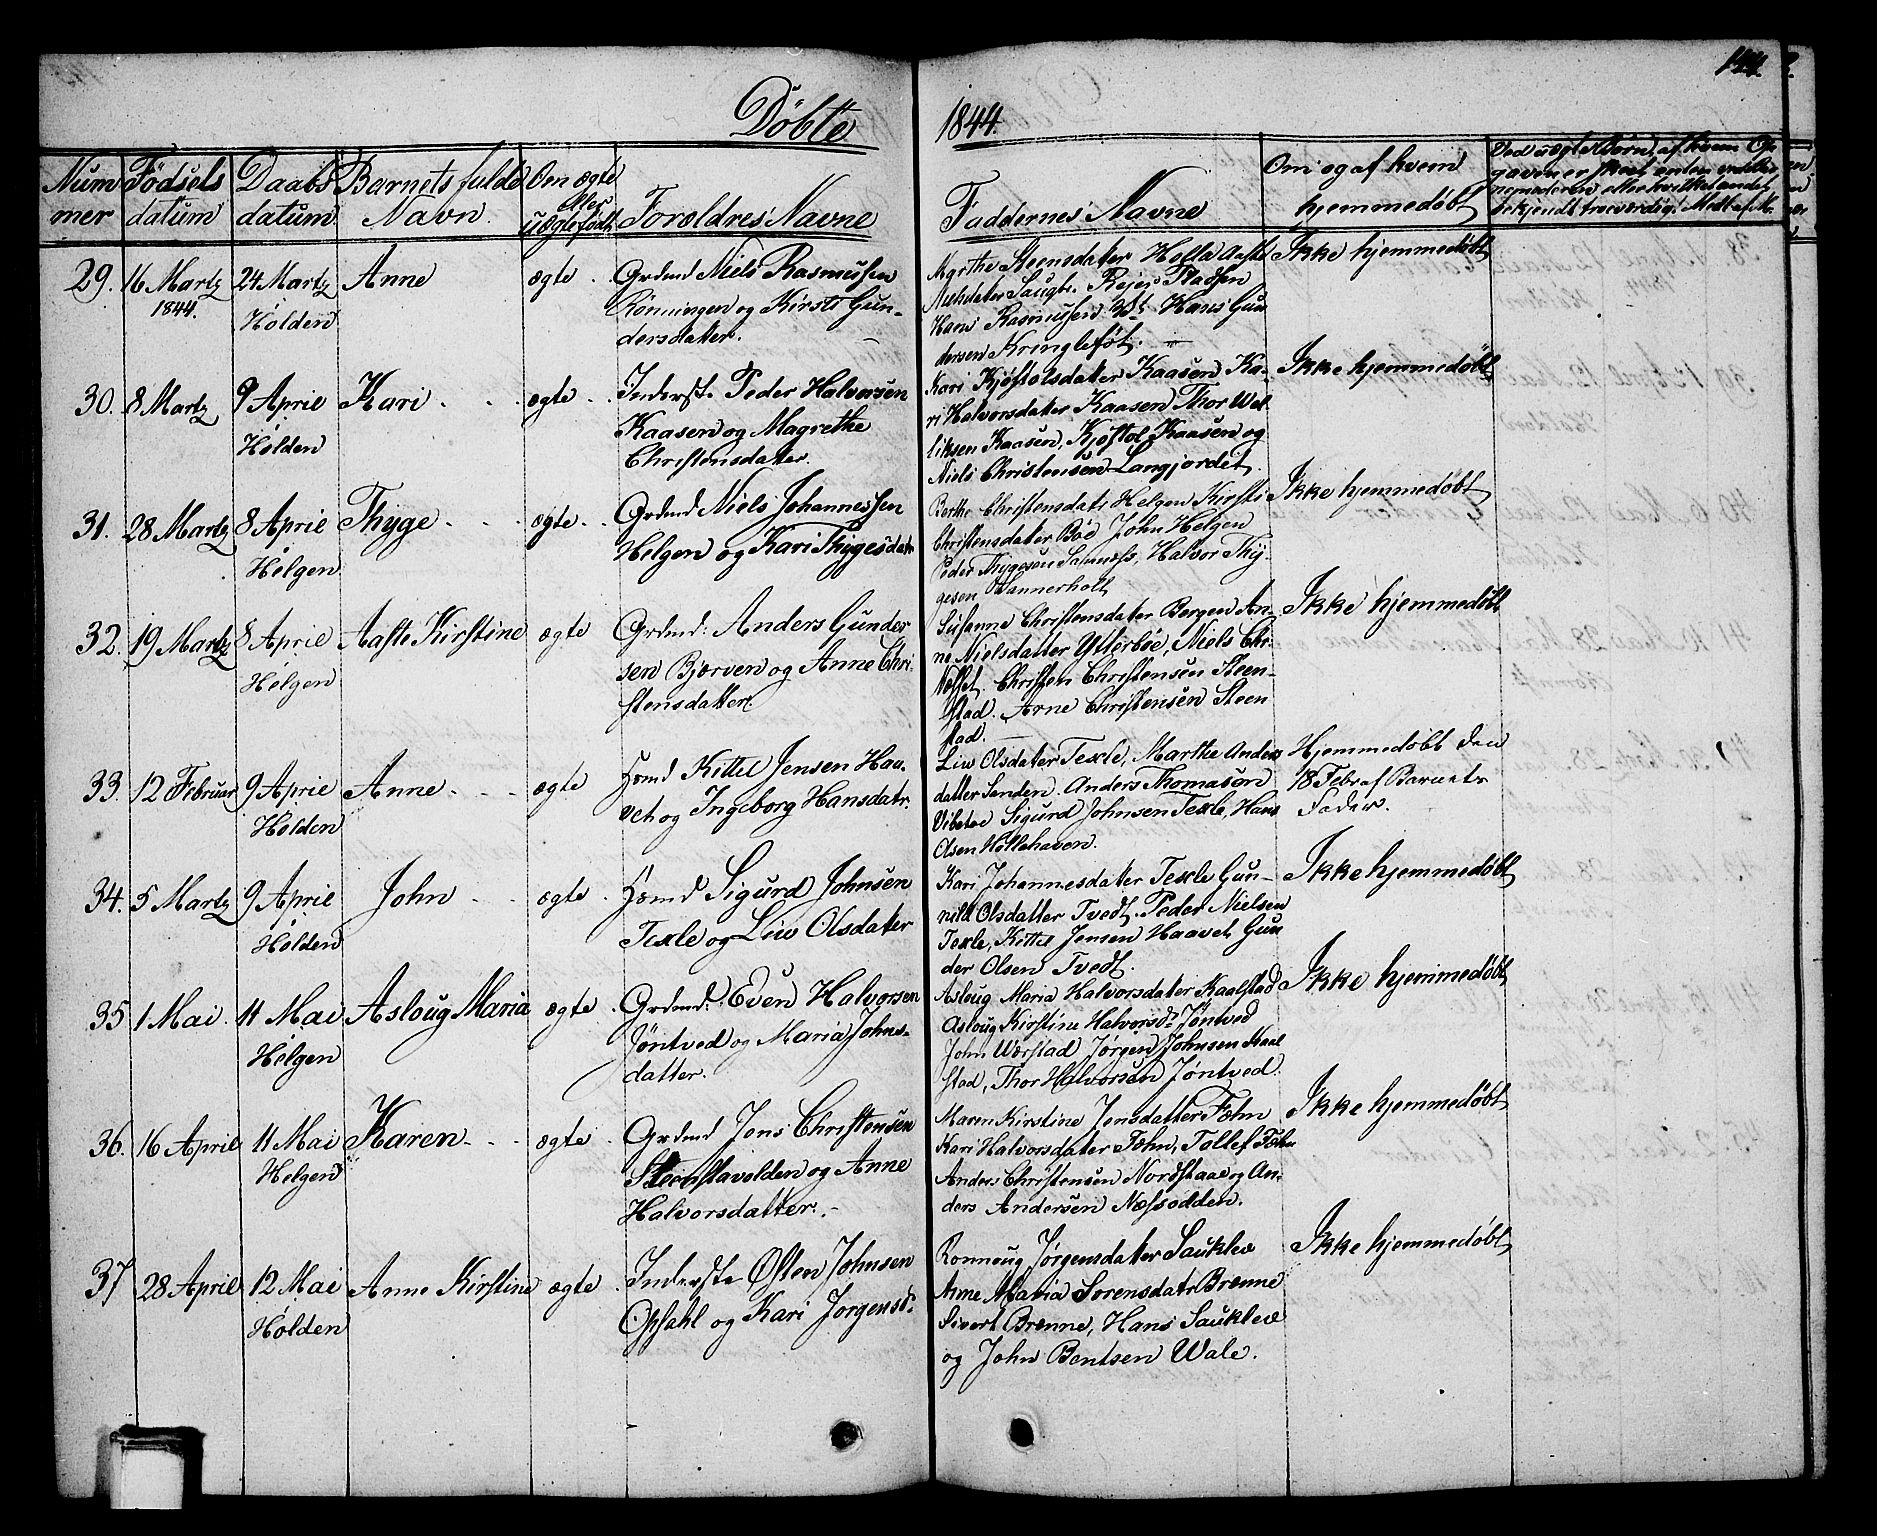 144.
Döbte 1844.
Nummer
Födsels datum
Daabs datum
Barnets fulde Navn
Om ægte eller uægtefödt
Forældres Navne
Faddernes Navne
Om og af hvem hjemmedöbt
29. 16 Martz 1844. 24 Martz Holden Anne ægte.
Grdmd Niels Rasmussen
Rönningen og Kirsti Gun-
dersdatter.
Hans Rasmussen Hans Gun
dersen Kringlefot.
Ikke hjemmedöbt
30. 8 Martz 9 April Holden Kari ægte
Inderst. Peder Halvorsen
Kaasen og Magrethe
Christensdatter.
Kari Kjøstolsdatter Kaasen Ka-
ri Halvorsdater Kaasen Thor Wet
liksen Kaasen, Kjøstol Kaasen og
Niels Christensen Langjordet.
Ikke hjemmedöbt
31. 28 Martz 8 April Helgen Thyge ægte
Grdmd Niels Johannessen
Helgen og Kari Thygesdatr
Berthe Christensdatr Helgen Kirsti
Christensdater Böe John Helgen
Peder Thygesen Halvor Thy-
gesen Wannerholt
Ikke hjemmedöbt
32. 19 Martz 8 April Helgen Aaste Kirstine ægte
Grdmd: Anders Gunder
sen Bjerven og Anne Chri-
stensdatter.
Susanne Christensdater Bergen An-
ne Nielsdatter Ytterböe, Niels Chr.
Næset. Christen Christensen Steen-
stad. Arne Christensen Steen
stad.
Ikke hjemmedöbt
33. 12 Februar 9 April Holden Anne ægte
Hsmd Kittel Jensen Haa-
vet og Ingeborg Hansdatr.
Liw Olsdater Texle, Marthe Anders
datter Sanden. Anders Thomasøn
Vibetoe Sigurd Johnsen Texle, Hans
Olsen Hollehaven.
Hjemmedöbt den
18 Febr af Barnets
Fader.
34. 5 Martz 9 April Holden John ægte
Hsmd Sigurd Johnsen
Texle og Liw Olsdater
Kari Johannesdater Texle Gun-
nild Olsdatter Tvedt. Peder Nielsen
Texle, Kittel Jensen Haavet Gun
der Olsen Tvedt.
Ikke hjemmedöbt
35 1 Mai. 11 Mai Helgen Asloug Maria ægte
Grdmd: Even Halvorsen
Jöntved og Maria Johns-
datter.
Asloug Maria Halvorsdater Kaalstad
Asloug Kirstine Halvorsdr Jöntved
John Wærstad Jørgen Johnsen Kaal
stad, Thor Halvorsen Jöntved.
Ikke hjemmedöbt
36. 16 April 11 Mai Helgen Karen ægte
Grdmd Jens Christensen
Steenstavolden og Anne
Halvorsdatter.
Maren Kirstine Jensdatter Fæhn
Kari Halvorsdater Fæhn, Tollef Fæhn
Anders Christensen Nordstaae og An-
ders Andersen Næssodden.
Ikke hjemmedöbt
37 28 April 12 Mai Holden Anne Kirstine ægte
Inderste Østen Johnsen
Opsahl og Kari Jorgensd.
Ronnoug Jørgensdater Sauklev
Anne Maria Sorensdatr Brenne
Sivert Brenne, Hans Sauklev
og John Bentsen Wale.
Ikke hjemmedöbt